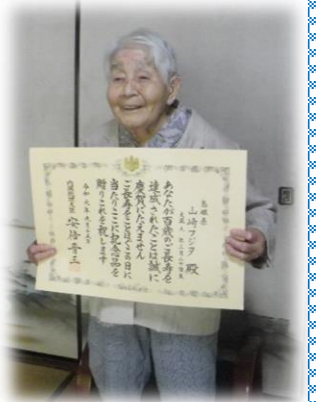 島根県
山崎フジヲ 殿
あなたが百歳のご長寿を
達成されたことは誠に
慶賀にたえません
ご長寿をことほぐ 日に
当たりここに記念品を
贈りこれを祝します
令和元年九月十五日
内閣総理大臣 安倍晋三